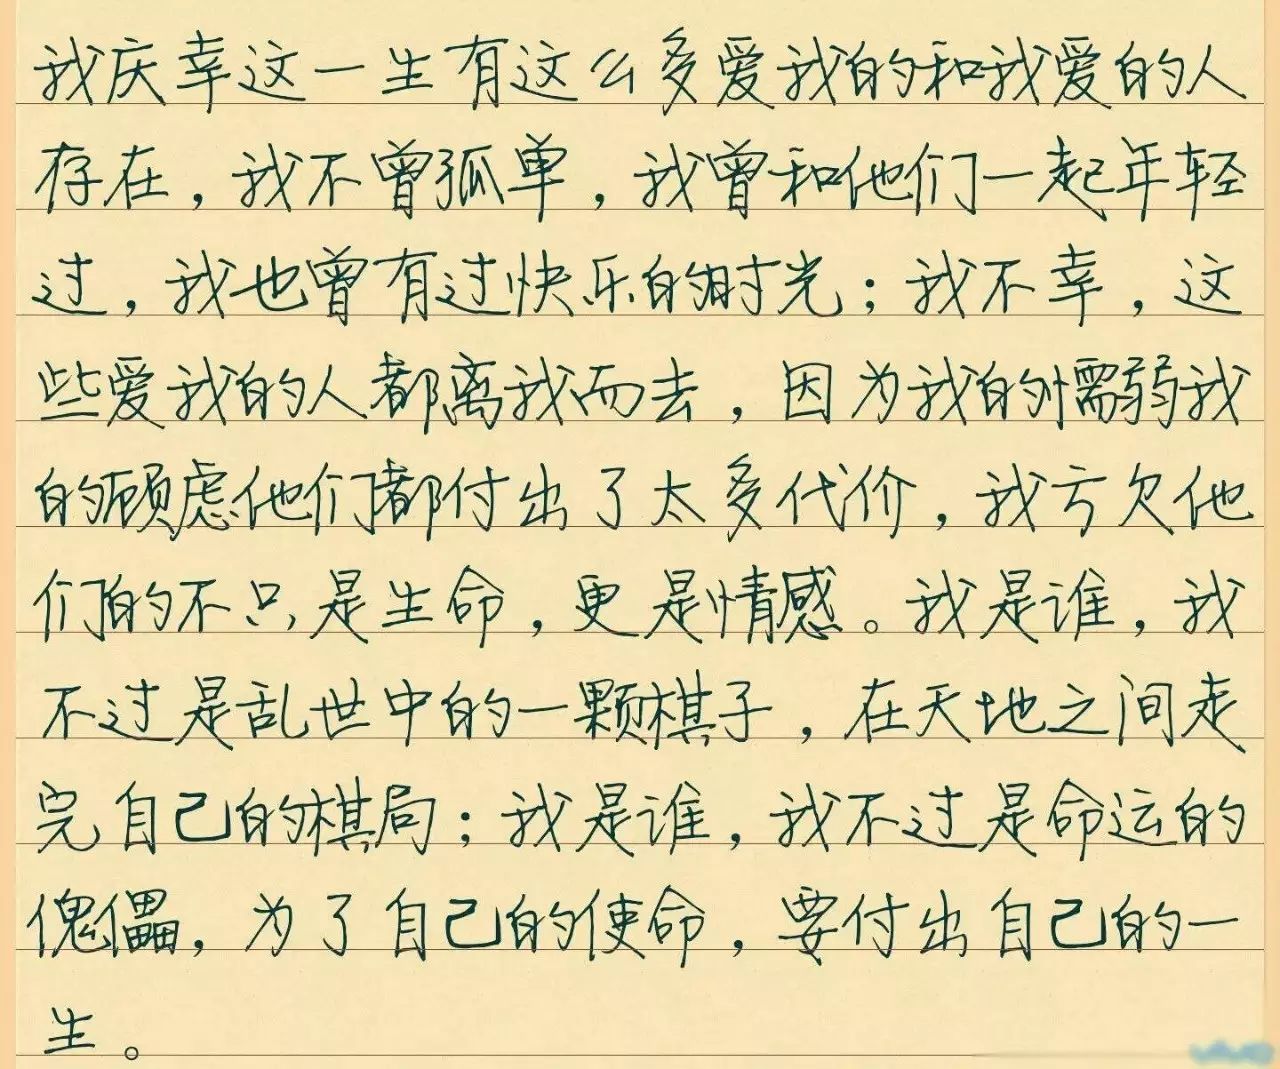 我庆幸这一生有这么多爱我的和我爱的人
存在，我不曾孤单，我曾和他们一起年轻
过，我也曾有过快乐的时光；我不幸，这
些爱我的人都离我而去，因为我的懦弱我
的顾虑他们都付出了太多代价，我亏欠他
们的不只是生命，更是情感。我是谁，我
不过是乱世中的一颗棋子，在天地之间走
完自己的棋局；我是谁，我不过是命运的
傀儡，为了自己的使命，要付出自己的一
生。